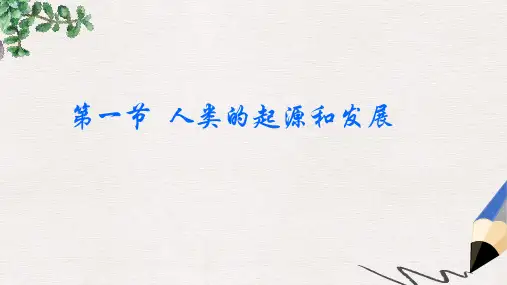 第一节 人类的起源和发展